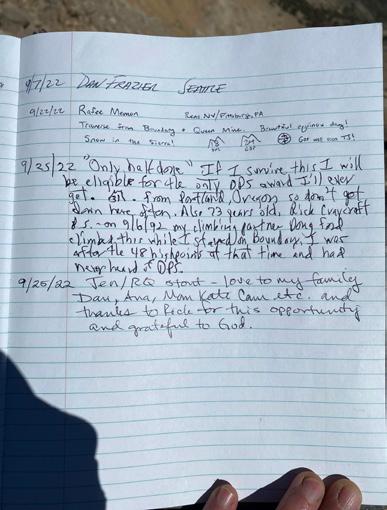 9/7/22 DAN FRAZIER SEATTLE
9/22/22 Rafee Memon Reno, NV/Pittsburgh, PA
Traverse from Boundary + Queen Mine. Beautiful equinox day!
Snow in the Sierra!
9/25/22 "Only half done" If I survive this I will
be eligible for the only DPS award I'll ever
get. From Portland, Oregon so don't get
down here often. Also 73 years old, Rick
P.S. - on 9/6/92 my climbing partner Doug
climbed this while I stayed on boundary. I was
after the 48 highpoints at that time and had
never heard of DPS.
9/25/22 Jen/RQ start - love to my family
Dan, Ana, Mom Kate Cam etc. and
thanks to Rick for this opportunity
and grateful to God.